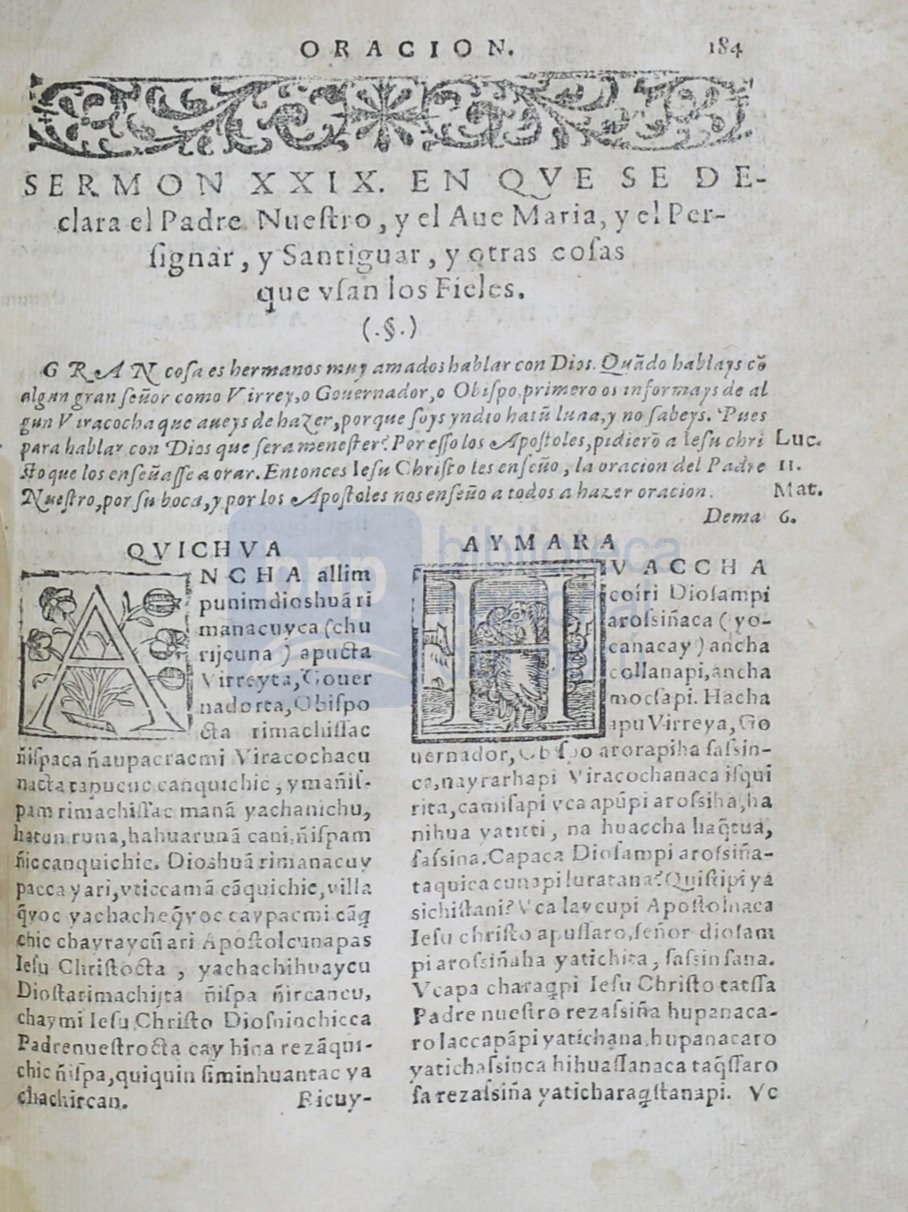 ORACION. 184
SERMON XXIX. EN QVE SE DE-
clara el Padre Nueſtro, y el Aue Maria, y el Per-
ſignar, y Santiguar, y otras coſas
que vſan los Fieles.
(.§.)
GRAN coſa es hermanos muy amados hablar con Dios. Quãdo hablays cõ
algun gran ſeñor como Virrey, o Gouernador, o Obiſpo, primero os informays de al
gun Viracocha que aueys de hazer, porque ſoys yndio hatũ luna, y no ſabeys. Pues
para hablar con Dios que ſera meneſter? Por eſſo los Apoſtoles, pidierõ a Ieſu chri
ſto que los enſeñaſſe a orar. Entonces Ieſu Chriſto les enſeño, la oracion del Padre
Nueſtro, por ſu boca, y por los Apoſtoles nos enſeño a todos a hazer oracion.
Dema
Luc.
11.
Mat.
6.
QVICHVA
ANCHA allim
punimdioshuã ri
manacuyca (chu
rijcuna) apucta
Virreyta, Gouer
nadorta, Obiſpo
cta rimachiſſac
ñiſpaca ñaupacracmi Viracochacu
nacta tapucuc canquichic, ymañiſ-
pam rimachiſſac manã yachanichu,
hatun runa, hahuarunã cani, ñiſpam
ñiccanquichic. Dioshuã rimanacuy
pacca yari, vticcamã cãquichic, villa
q̃yoc yachacheq̃yoc caypacmi cãq̃
chic chayraycũ ari Apoſtolcunapas
Ieſu Chriſtocta, yachachihuaycu
Dioſtarimachijta ñiſpa ñircancu,
chaymi Ieſu Chriſto Dioſninchicca
Padrenueſtrocta cay hina rezãqui-
chic ñiſpa, quiquin ſiminhuantac ya
chachircan. Ricuy-
AYMARA
HVACCHA
coiri Dioſampi
aroſsiñaca (yo-
canacay) ancha
collanapi, ancha
mocſapi. Hacha
apu Virreya, Go
uernador, Obiſpo arorapiha ſaſsin-
ca, nayrarhapi Viracochanaca iſqui
rita, camiſapi vca apũpi aroſsiha, ha
nihua yatitti, na huaccha haq̃tua,
ſaſsina. Capaca Dioſampi aroſsiña-
taquica cunapi luratana? Quiſtipi yã
sichiſtani? Vca laycupi Apoſtolnaca
Ieſu chriſto apuſſaro, ſeñor dioſam
pi aroſsiñaha yatichita, ſaſsin ſana.
Vcapa charaq̃pi Ieſu Chriſto tatſſa
Padre nueſtro rezaſsiña hupanaca-
ro laccapãpi yatichana, hupanacaro
yatichaſsinca hihuaſſanaca taq̃ſſaro
ſa rezaſsiña yaticharaq̃ſtanapi. Vc
biblioteca